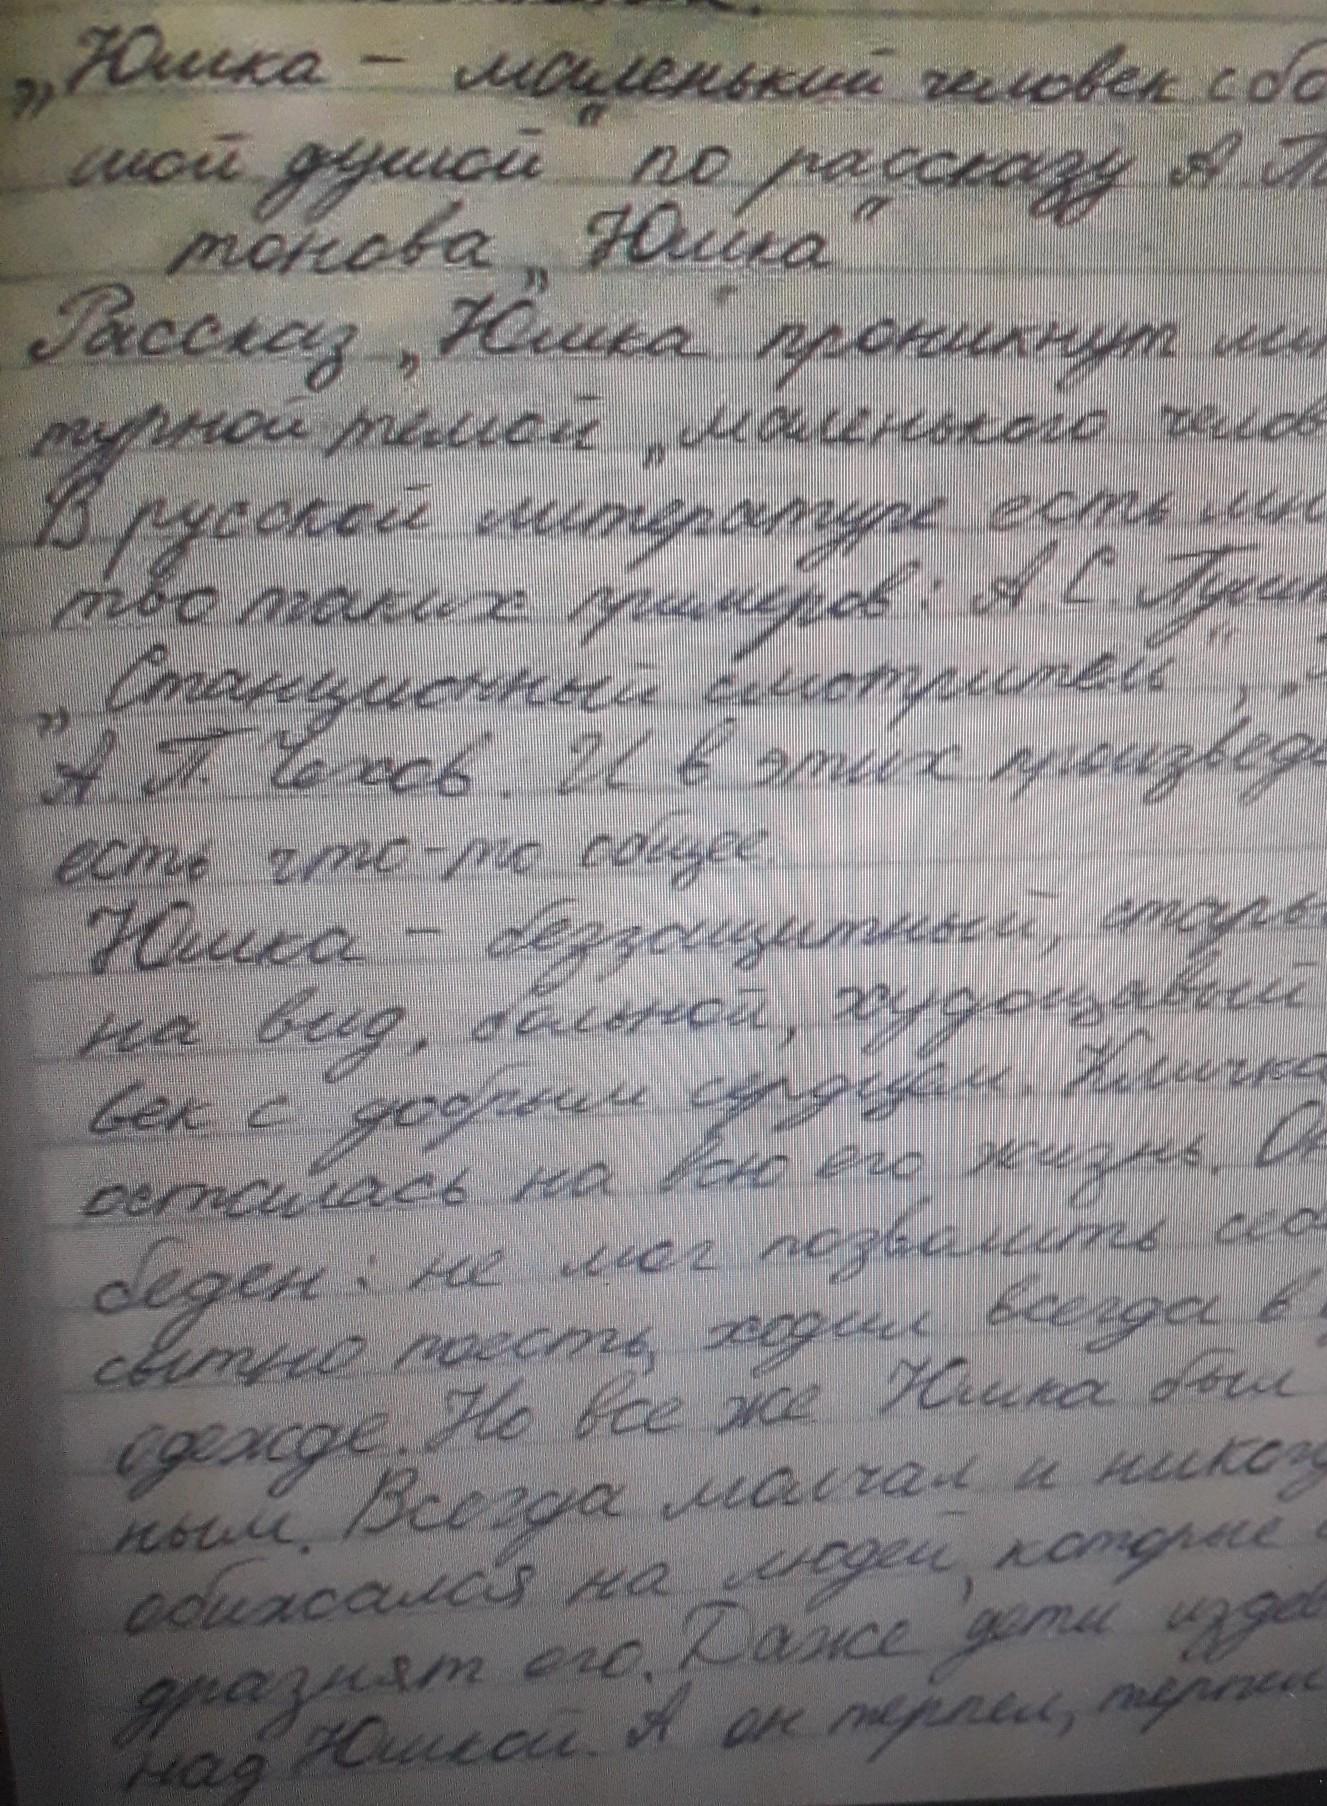 „Юшка – маленький человек с бо
шой душой" по рассказу А. П
тонова „Юшка"
Рассказ „Юшка" проникнут ли
турной темой „маленького челов
В русской литературе есть мно
тво таких примеров: А С Пуш
„Станционный смотритель",
А. П. Чехов. И в этих произвед
есть что-то общее.
Юшка – беззащитный, стары
на вид, больной, худощавый
век с добрым сердцем. Кличка
осталась на всю его жизнь. Он
беден: не мог позволить себ
сытно поесть, ходил всегда в
одежде. Но все же Юшка был
ным. Всегда молчал и никогд
обижался на людей, которые
дразнят его. Даже дети издев
над Юшкой. А он терпел, терпел